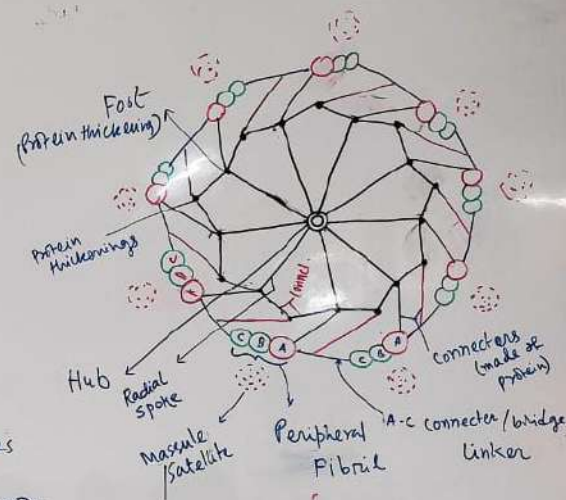 Foot
(Protein thickening)
Protein
thickenings
C
B
A
C
B
A
C
B
A
Hub
Radial
spoke
Massule
/Satellite
Peripheral
Fibril
A-C connecter/bridge
linker
connecters
(made of
protein)